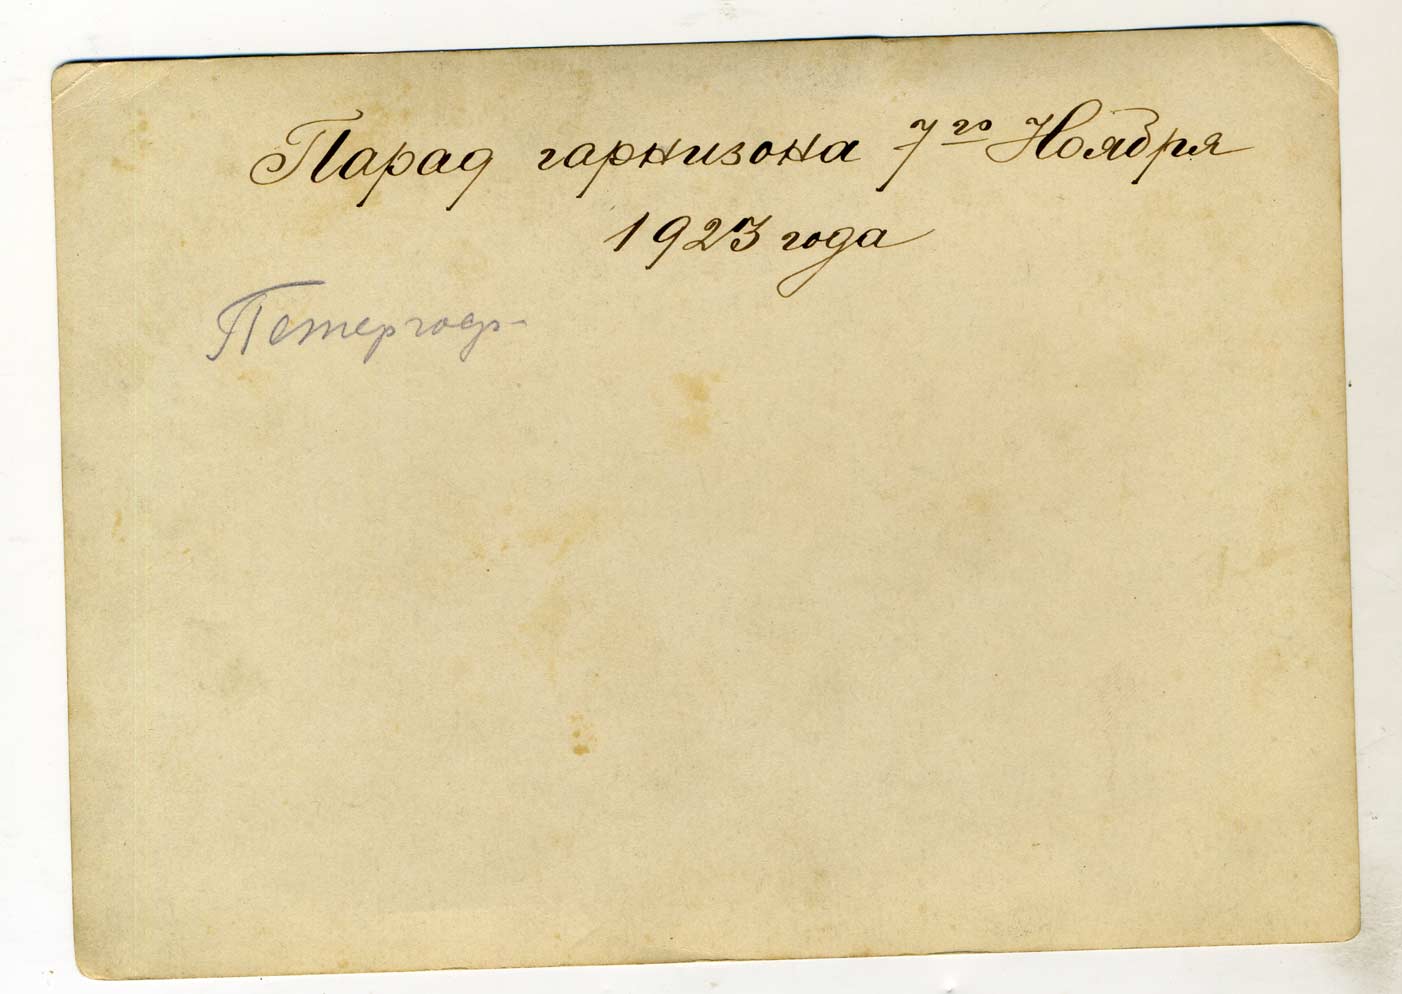 Парад гарнизона 7го Ноября
1923 года
Петергоф